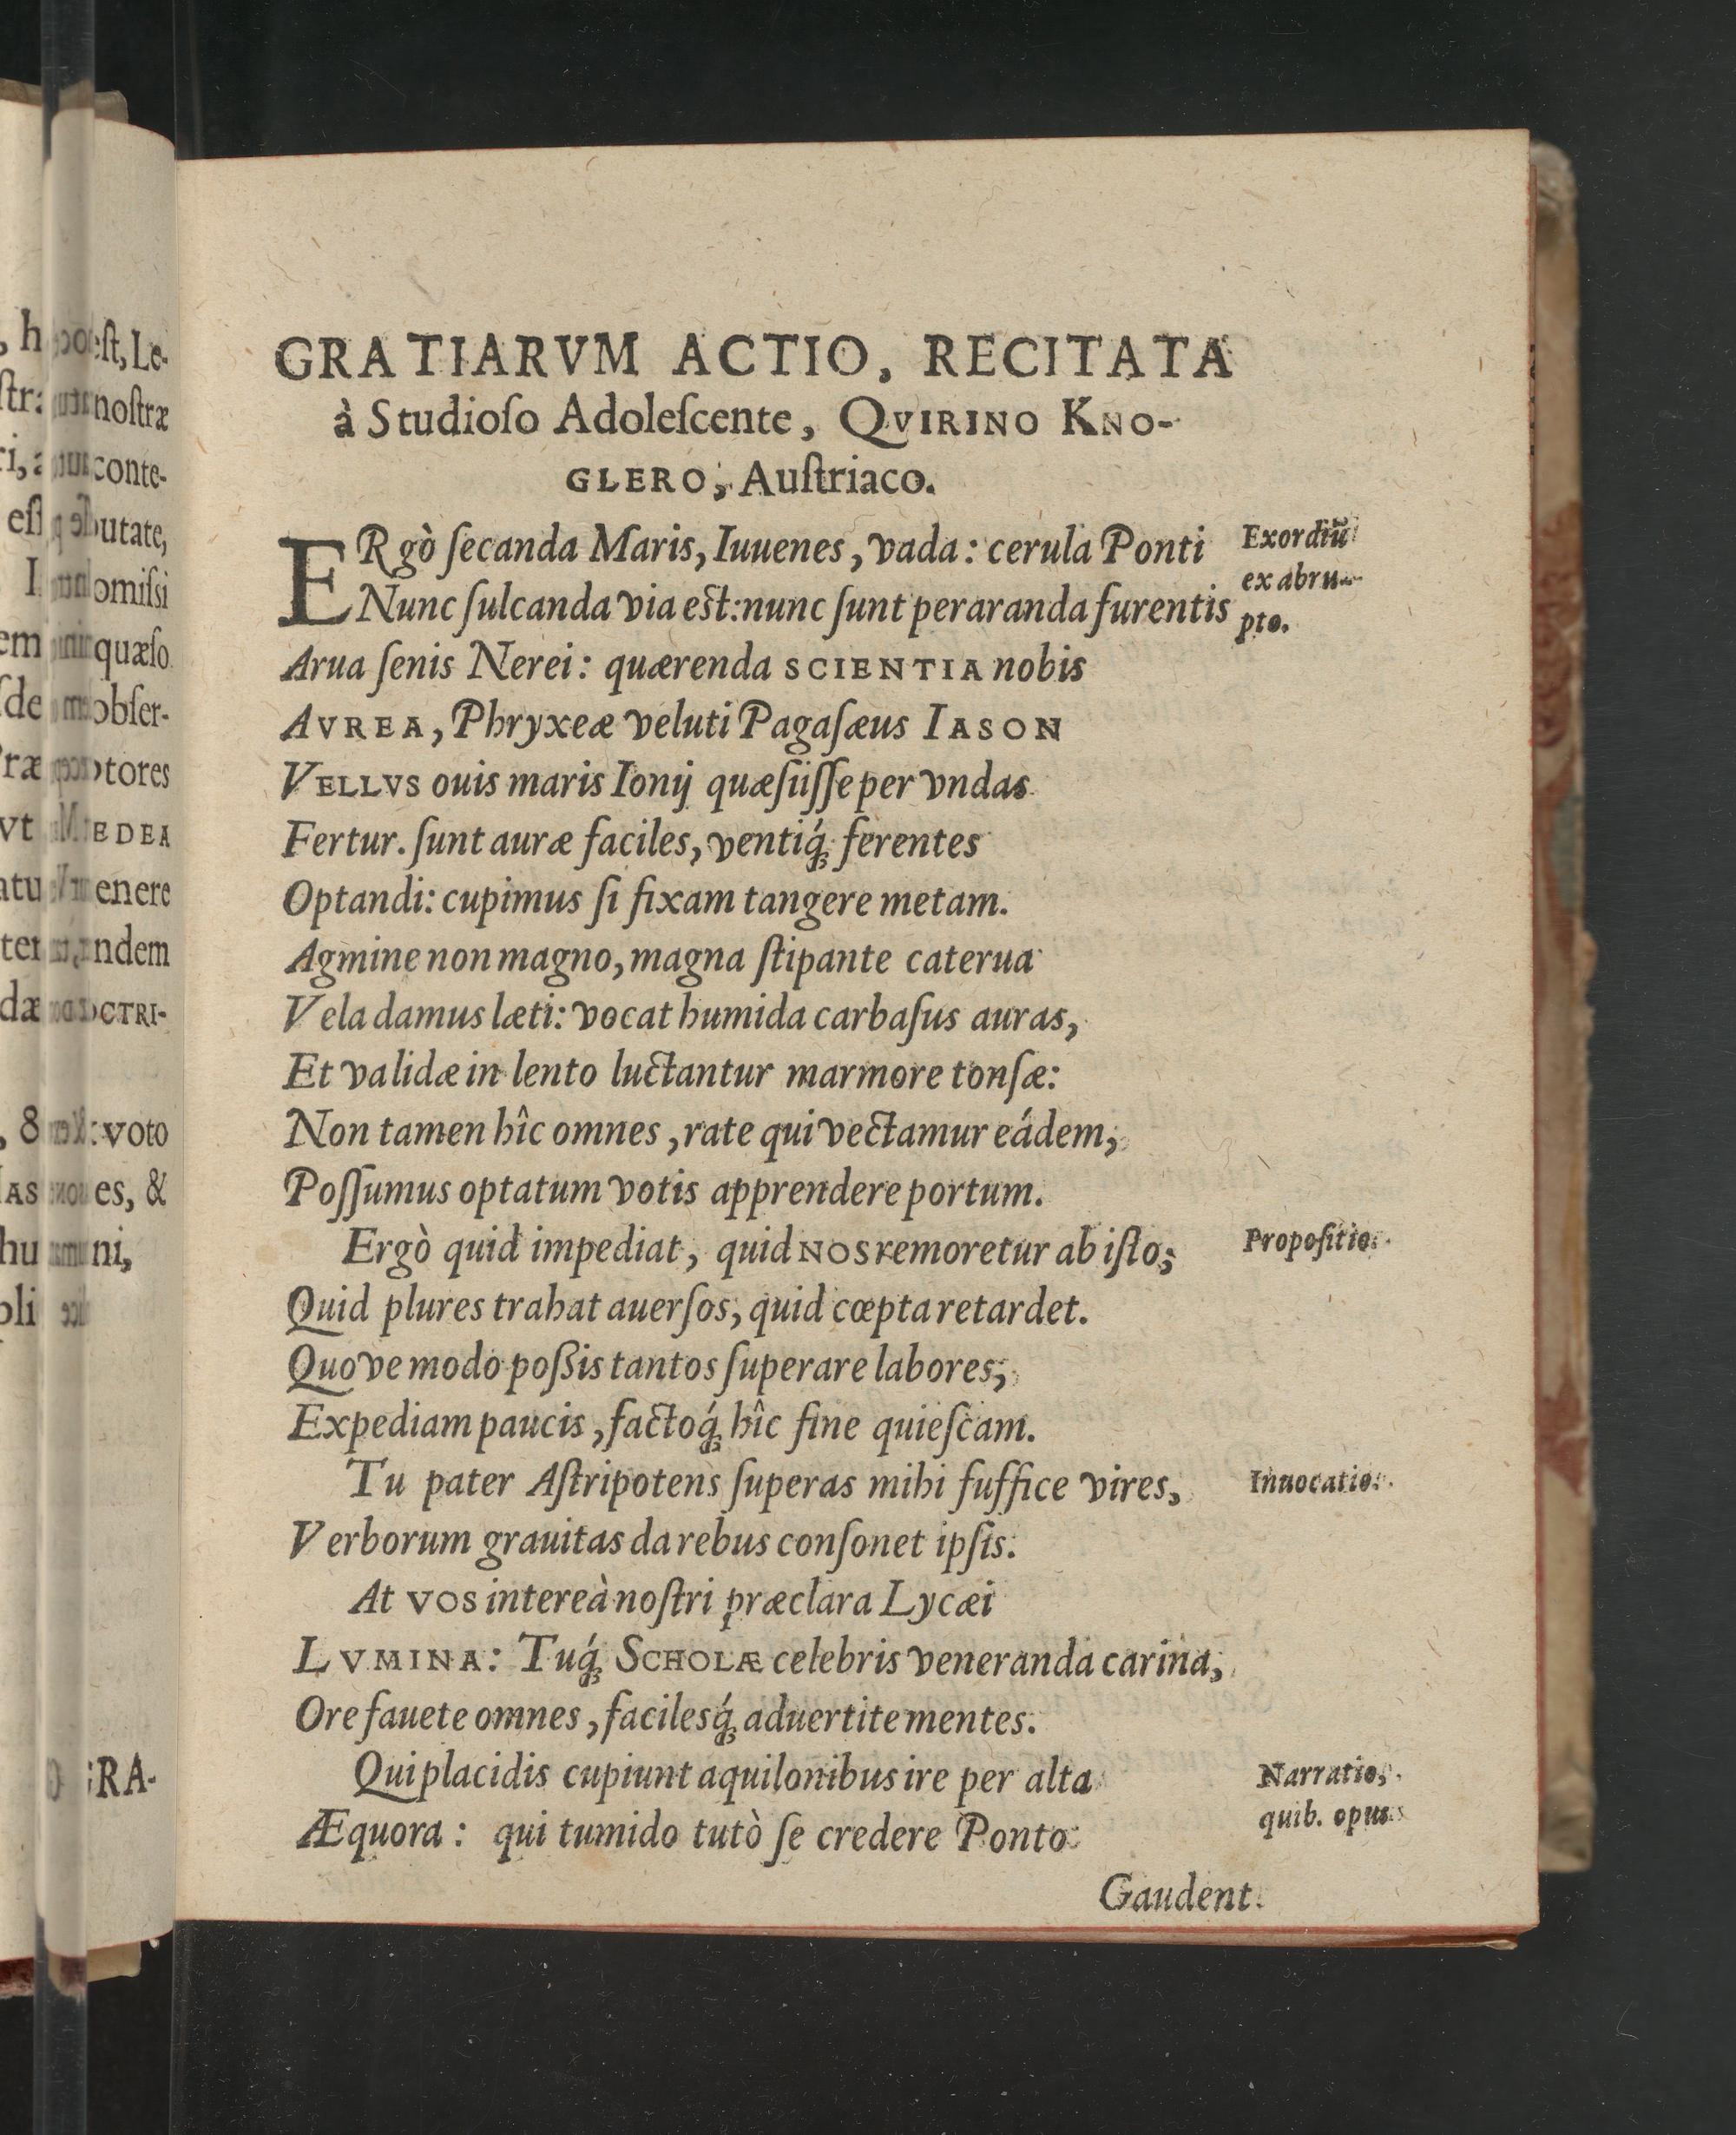 GRATIARVM ACTIO, RECITATA
à Studioſo Adoleſcente, QVIRINO KNO-
GLERO, Auſtriaco.
ERgò ſecanda Maris, Iuuenes, vada: cerula Ponti
Nunc ſulcanda via eſt: nunc ſunt peraranda furentis
Arua ſenis Nerei: quærenda SCIENTIA nobis
AVREA, Phryxeæ veluti Pagaſæus IASON
VELLVS ouis maris Ionij quæſiiſſe per vndas
Fertur. ſunt auræ faciles, ventiq́ꝫ ferentes
Optandi: cupimus ſi fixam tangere metam.
Agmine non magno, magna ſtipante caterua
Vela damus læti: vocat humida carbaſus auras,
Et validæ in lento luctantur marmore tonſæ:
Non tamen hîc omnes, rate qui vectamur eádem,
Poſſumus optatum votis apprendere portum.
Ergò quid impediat, quid NOS remoretur ab iſto;
Quid plures trahat auerſos, quid cœpta retardet.
Quo ve modo poßis tantos ſuperare labores;
Expediam paucis, factoq́ꝫ hîc fine quieſcam.
Tu pater Aſtripotens ſuperas mihi ſuffice vires,
Verborum grauitas da rebus conſonet ipſis.
At VOS intereà noſtri præclara Lycæi
LVMINA: Tuq́ꝫ SCHOLÆ celebris veneranda carina,
Ore fauete omnes, facilesq́ꝫ aduertite mentes.
Qui placidis cupiunt aquilonibus ire per alta
Æquora: qui tumido tutò ſe credere Ponto
Gaudent.
Exordiũ
ex abru-
pto.
Propoſitio.
Inuocatio.
Narratio,
quib. opus
eſt, Le-
noſtræ
conte-
butate,
omiſsi
quæſo
obſer-
tores
MEDEA
enere
ndem
OCTRI-
voto
es, &
ni,
GRA-